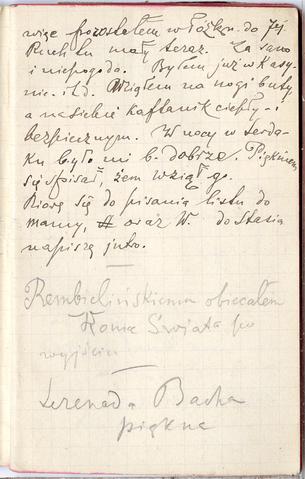 więc pozostałem w łóżku do 7ej.
Ruch tu mały teraz. Za sano
i niepogoda. Byłem już w Kasy-
nie. itd. Wziąłem na nogi buty
a na siebie kaftanik ciepły i
bezpiecznym. W nocy w serda-
ku było mi b. dobrze.
się spisał, żem wziął go.
Biorę się do pisania listu do
mamy, oraz W. do Stasia
napiszę jutro.
Rembielińskiemu obiecałem
Konie Świata po
wyjściu
Serenada Bacha
piękna